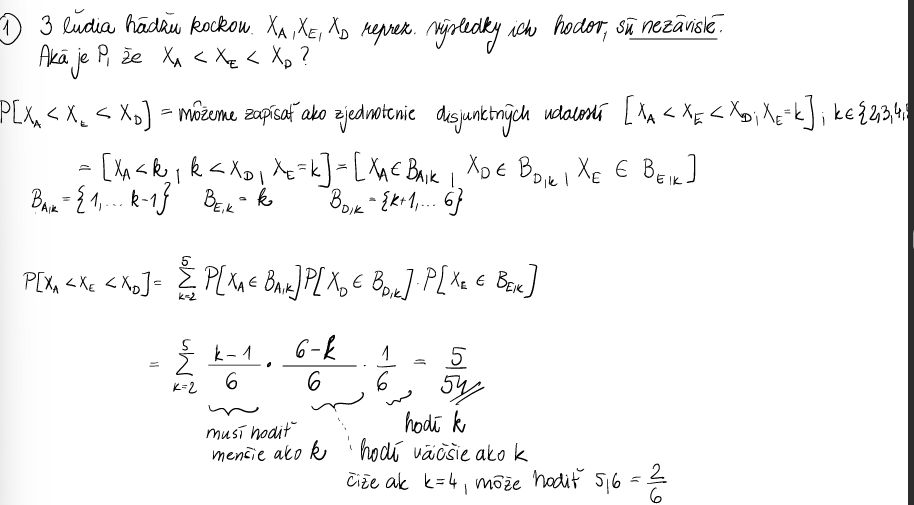 1) 3 ľudia hádžu kockou. X_A, X_E, X_D reprez. výsledky ich hodov, sú nezávislé.
Aká je P, že X_A < X_E < X_D ?
P[X_A < X_E < X_D] = môžeme zapísať ako zjednotenie disjunktných udalostí [X_A < X_E < X_D, X_E = k], k∈{2,3,4,5
= [X_A < k, k < X_D, X_E = k] = [X_A ∈ B_{A,k}, X_D ∈ B_{D,k}, X_E ∈ B_{E,k}]
B_{A,k} = {1, ... k-1} B_{E,k} = k B_{D,k} = {k+1, ... 6}
P[X_A < X_E < X_D] = \sum_{k=2}^{5} P[X_A ∈ B_{A,k}] P[X_D ∈ B_{D,k}] · P[X_E ∈ B_{E,k}]
= \sum_{k=2}^{5} \frac{k-1}{6} · \frac{6-k}{6} · \frac{1}{6} = \frac{5}{54}
hodí k
musí hodiť
menšie ako k hodí väčšie ako k
čiže ak k=4, môže hodiť 5,6 = \frac{2}{6}